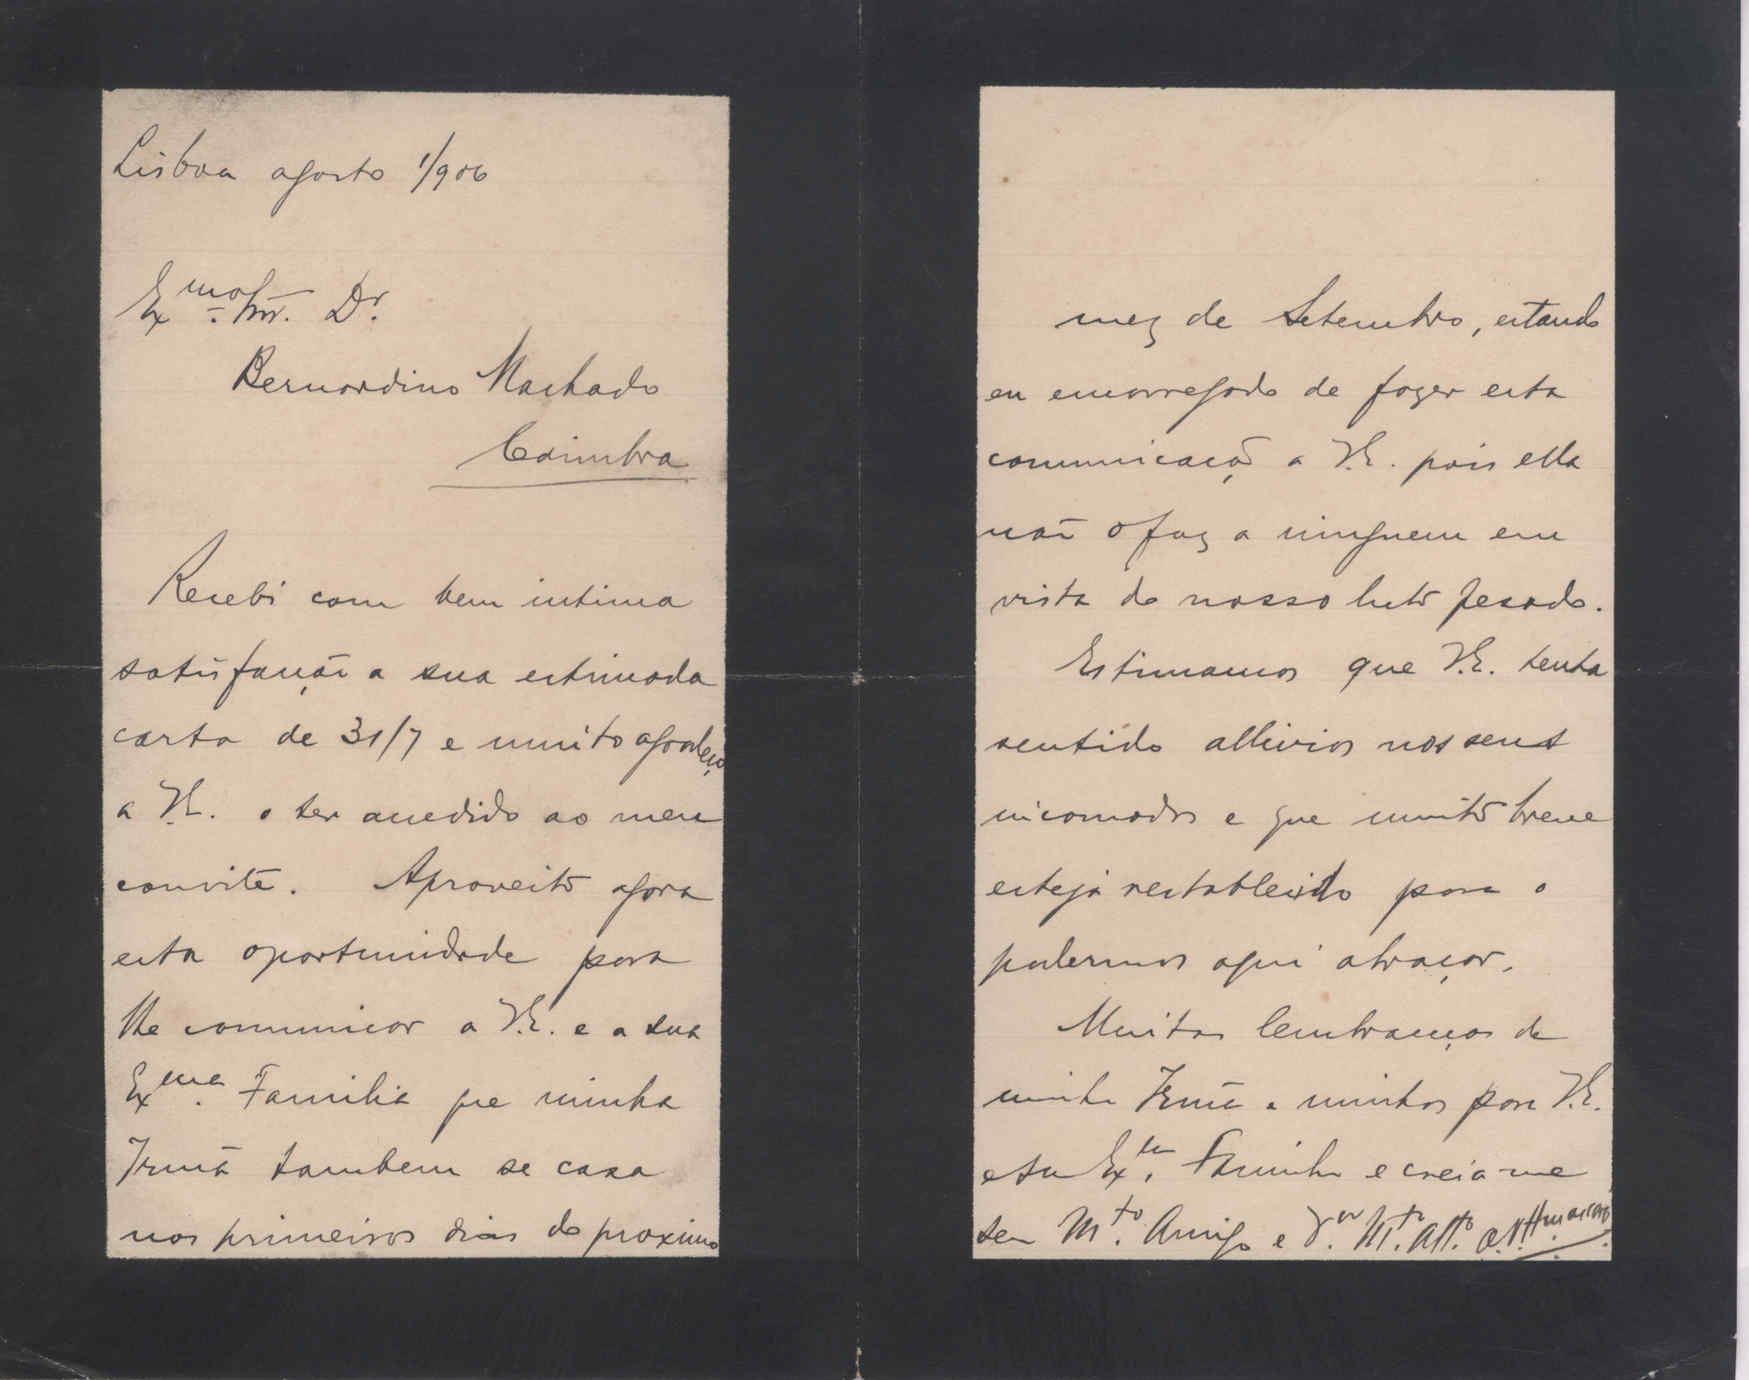 Lisboa agosto 1/906
Exmo Snr. Dr.
Bernardino Machado
Coimbra
Recebi com bem intima
satisfação a sua estimada
carta de 31/7 e muito agradeço
a V.E. o ter accedido ao meu
convite. Aproveito agora
esta oportunidade para
lhe comunicar a V.E. e a sua
Exma. Familia que minha
Irmã tambem se casa
nos primeiros dias do proximo
mez de Setembro, estando
eu encarregado de fazer esta
comunicação a V.E. pois ella
não o faz a ninguem em
vista do nosso luto pesado.
Estimamos que V.E. tenha
sentido allivios nos seus
incomodos e que muito breve
esteja restablecido para o
podermos aqui abraçar.
Muitas lembranças de
minha Irmã e minhas para V.E.
e sua Exma. Familia e creia-me
seu Mto. Amigo e Vor. Mto. Atto.